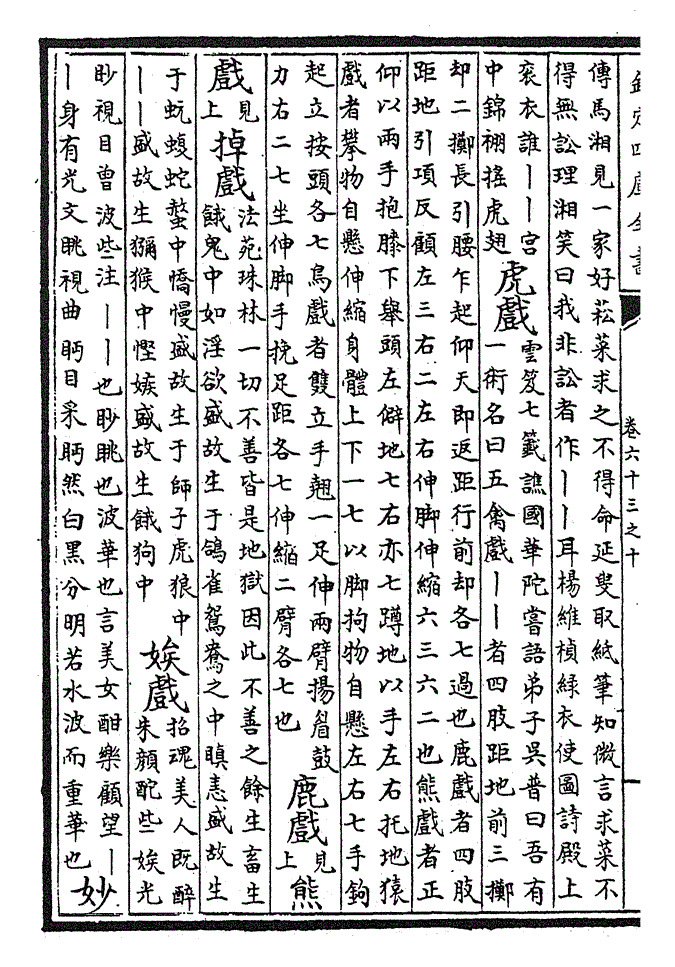 欽定四庫全書
卷六十三之十
一
傳馬湘見一家好菘菜求之不得命延叟取紙筆知微言求菜不
得無訟理湘笑曰我非訟者作丨丨耳楊維楨緑衣使圖詩殿上
衮衣誰丨丨宫
中錦棚摇虎翅
虎戲
雲笈七籤譙國華陀嘗語弟子吳普曰吾有
一術名曰五禽戲丨丨者四肢距地前三擲
却二擲長引腰乍起仰天即返距行前却各七過也鹿戲者四肢
距地引項反顧左三右二左右伸脚伸縮六三六二也熊戲者正
仰以兩手抱膝下舉頭左僻地七右亦七蹲地以手左右托地猿
戲者攀物自懸伸縮身體上下一七以脚拘物自懸左右七手鉤
起立按頭各七鳥戲者雙立手翹一足伸兩臂揚眉鼓
力右二七坐伸脚手挽足距各七伸縮二臂各七也
鹿戲
見上
熊戲
見上
掉戲
法苑珠林一切不善皆是地獄因此不善之餘生畜生
餓鬼中如淫欲盛故生于鴿雀鴛鴦之中瞋恚盛故生
于蚖蝮蛇螫中憍慢盛故生于師子虎狼中
丨丨盛故生獼猴中慳嫉盛故生餓狗中
娭戲
招魂美人既醉
朱顔酡些娭光
眇視目曾波些注丨丨也眇眺也波華也言美女酣樂顧望丨
丨身有光文眺視曲眄目采眄然白黑分明若水波而重華也
妙